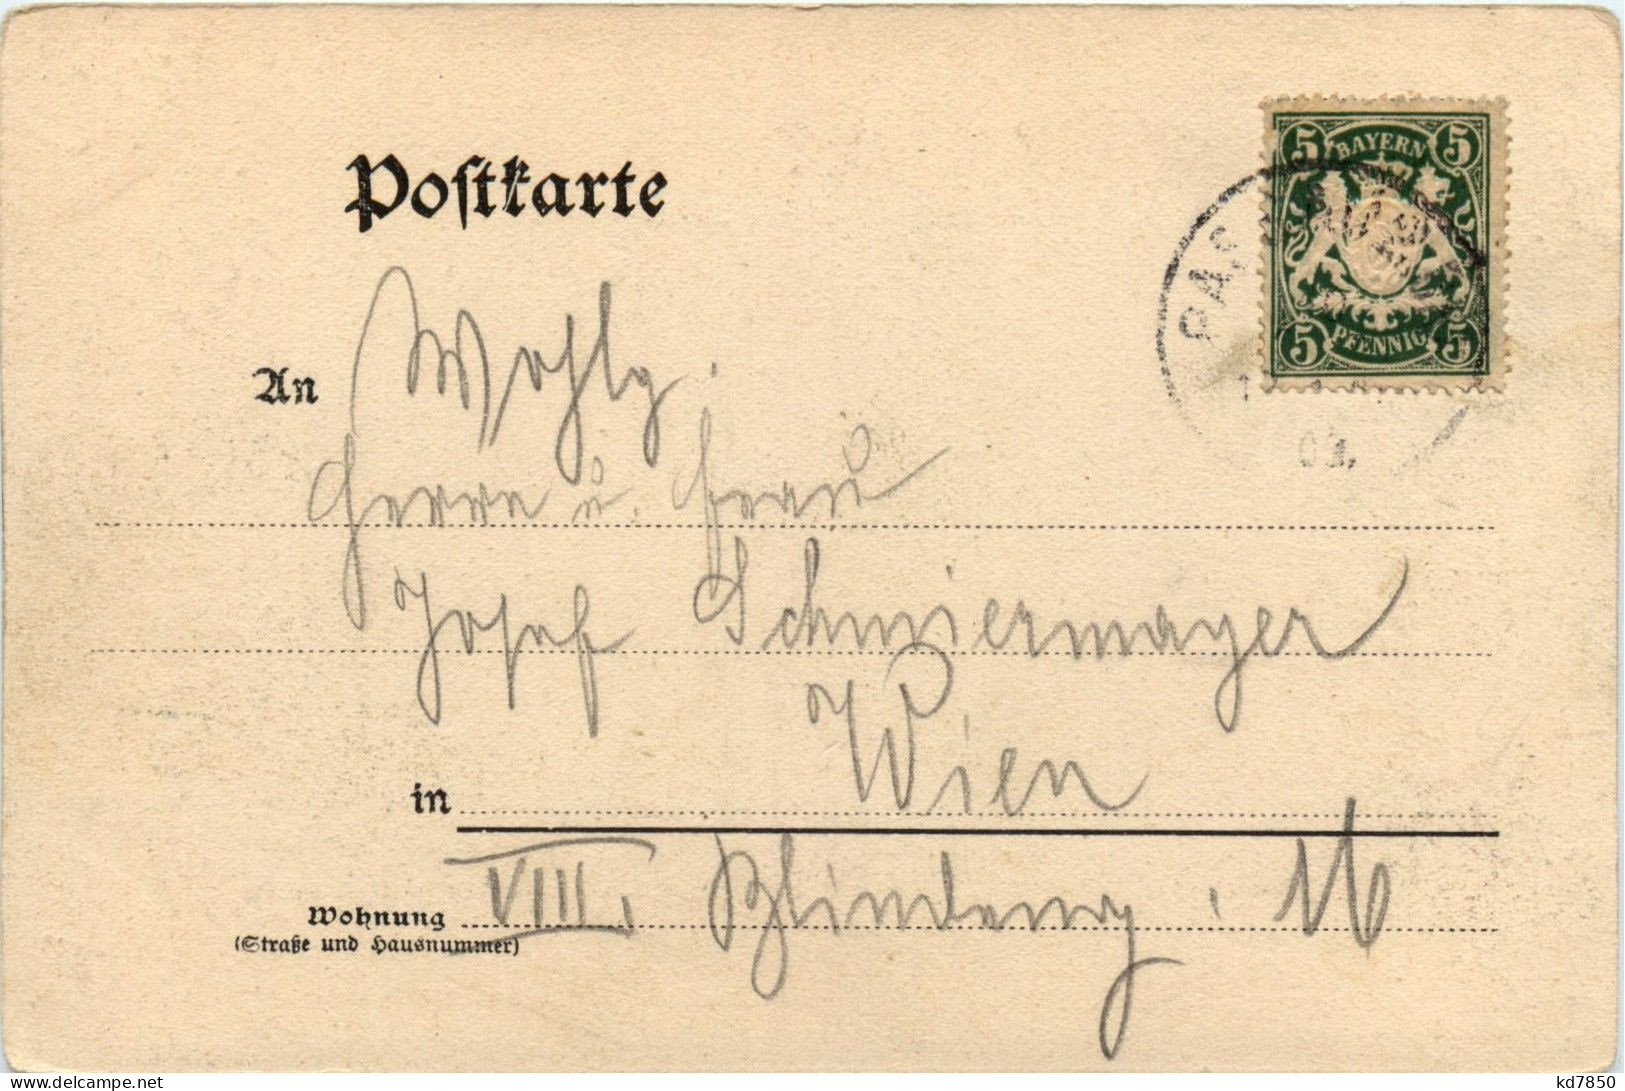 Postkarte
5 BAYERN 5
5 PFENNIG 5
PAS
03.
An Wohlg.
Herrn u. Frau
Josef Schmiermayer
in Wien
Wohnung VIII, Blindeng. 16
(Straße und Hausnummer)
www.delcampe.net
kd7850